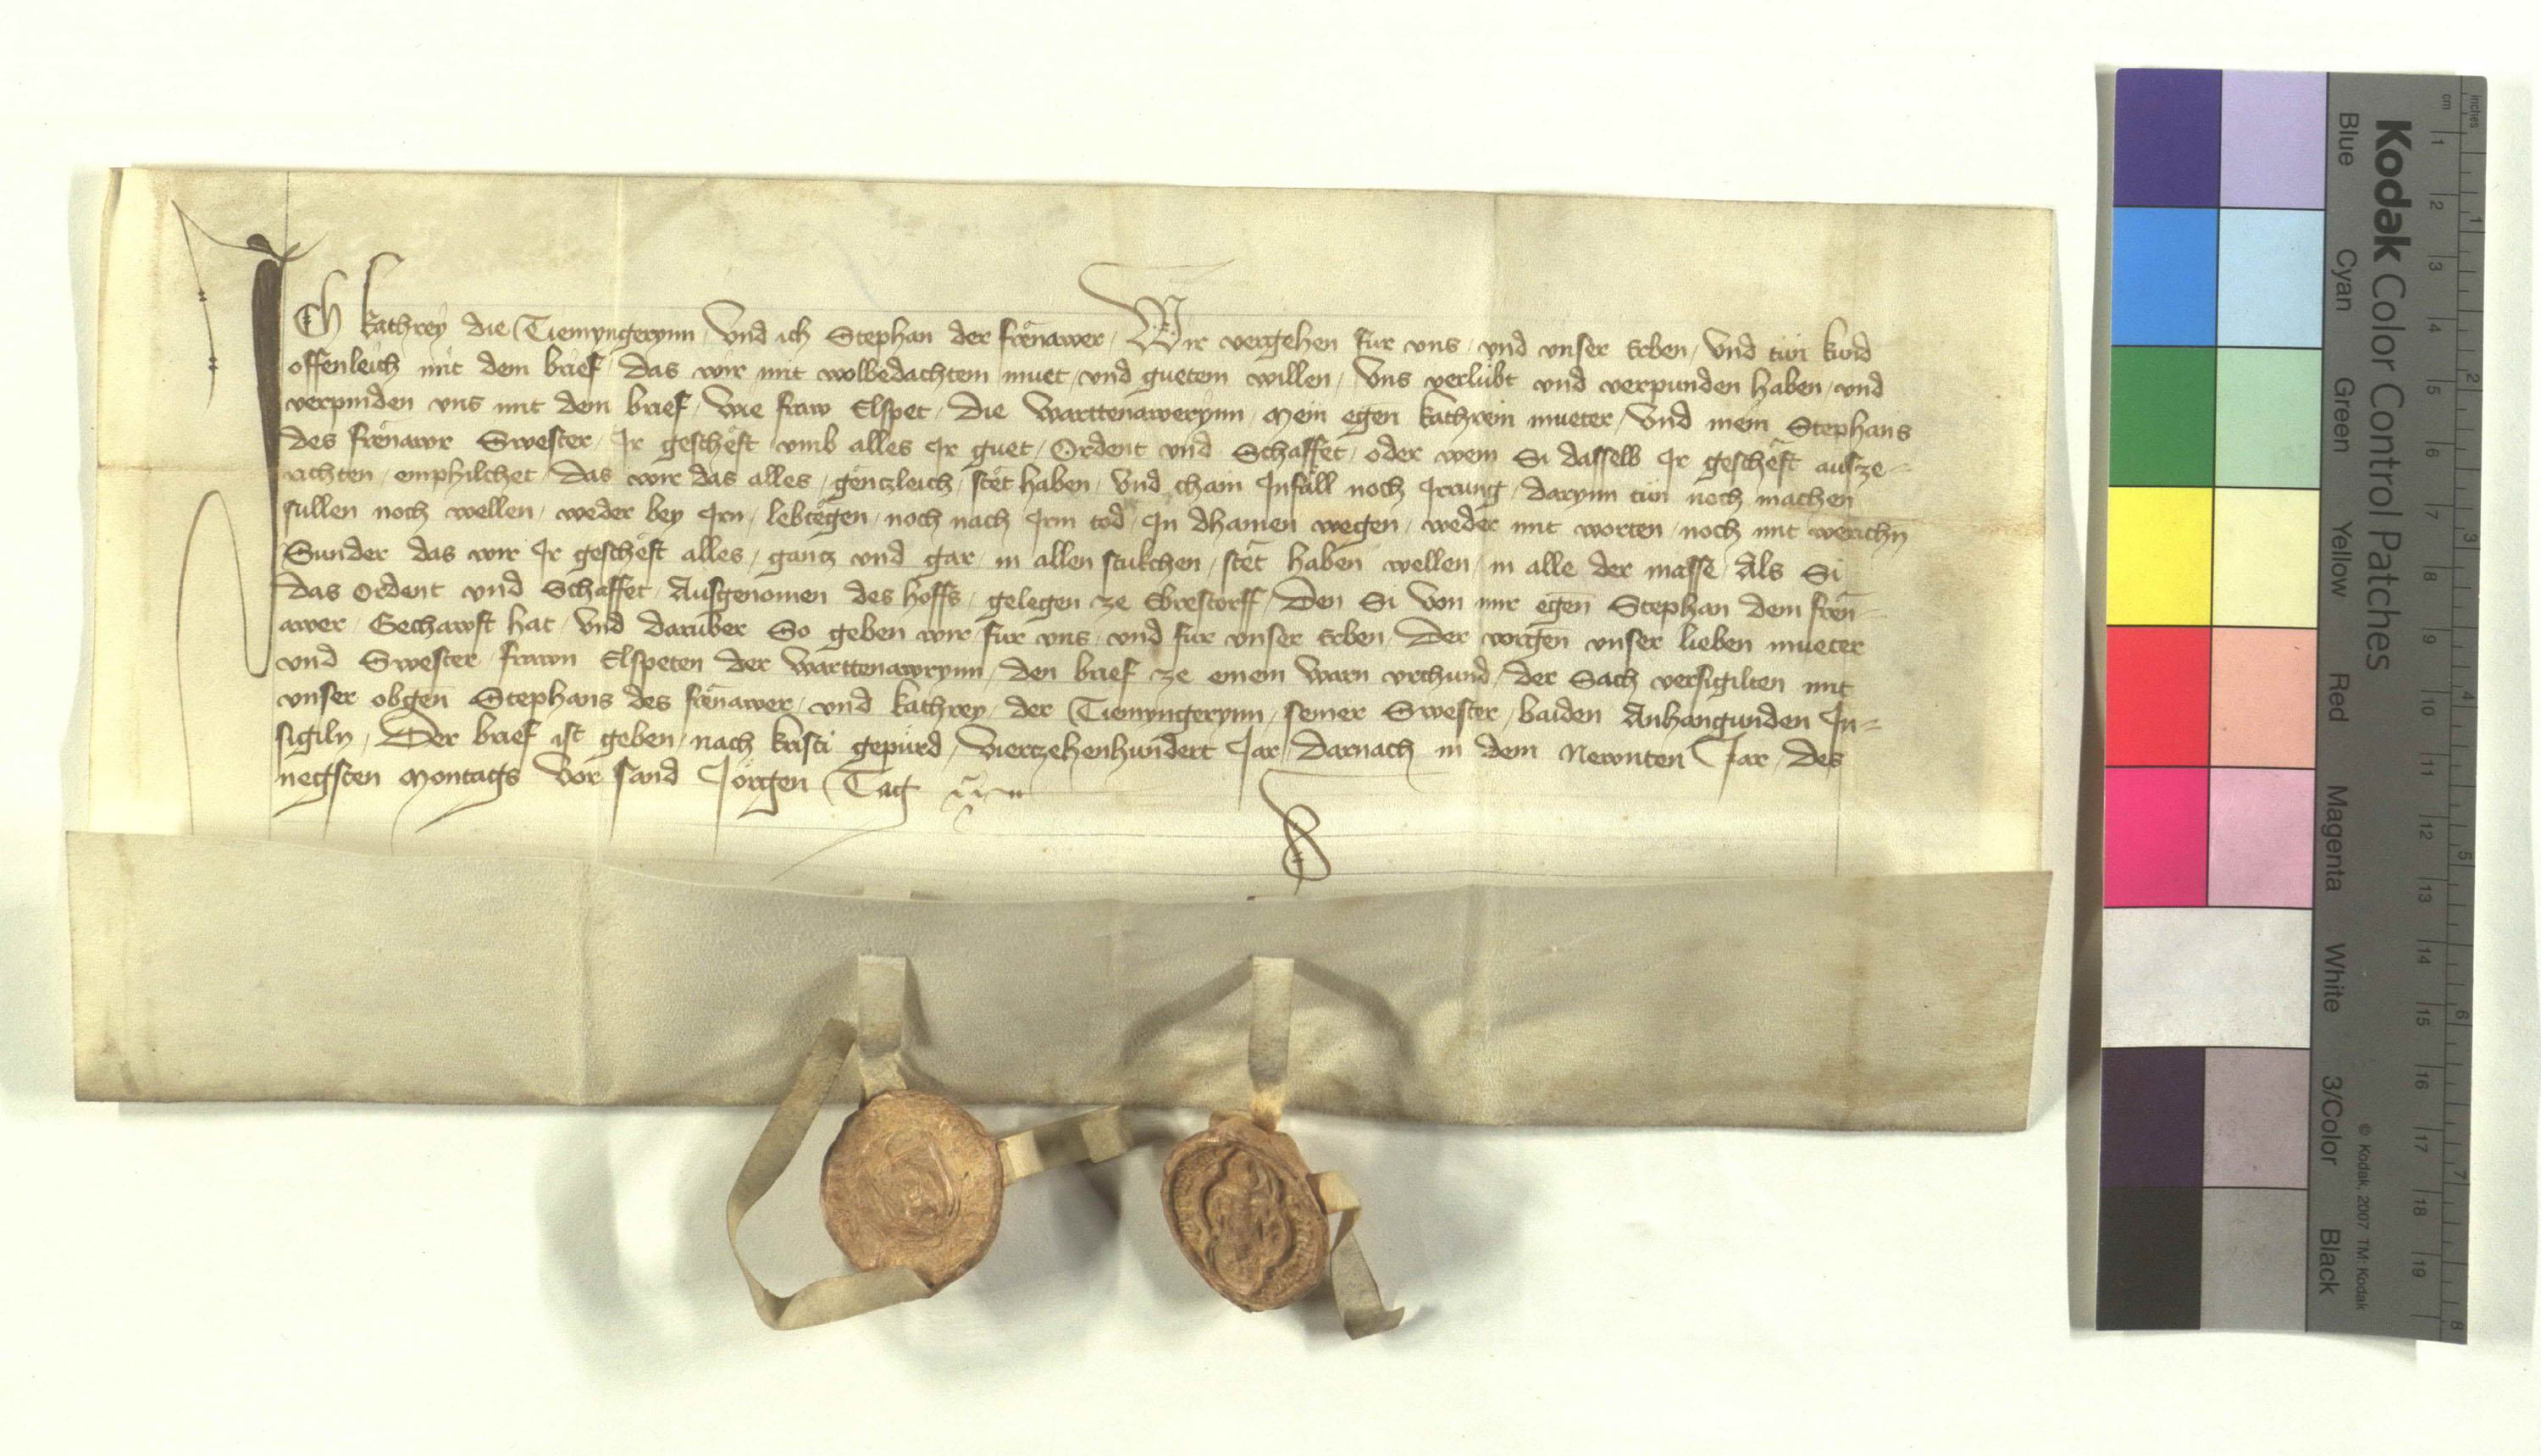 Ich kathrey die Tiemyngerynn / Vnd ich Stephan der frënawer / Wir vergehen für vns / vnd vnser Erben / Vnd tün kund
offenleich mit dem brief / Das wir mit wolbedachtem muet / vnd guetem willen / Vns verlübt vnd verpunden haben / vnd
verpinden vns mit dem brief / Wie fraw Elspet / die Warttenawerynn / Mein egen kathrein mueter / Vnd mein Stephans
des frënawr Swester / Ir geschëft vmb alles Ir guet / Ordent vnd Schaffet / oder wem Si dasselb Ir geschëft ausze-
richten / emphilchet / Das wir das alles / gëntzleich / stët haben / Vnd chain Infäll noch Irrung / darynn tün noch machen
sullen noch wellen / weder bey Irn / lebtëgen / noch nach Irm tod / In dhainen wegen / weder mit worten / noch mit werichn
Sunder das wir Ir geschëft alles / gantz vnd gar / in allen stukchen / stët haben wellen / in alle der masse / Als Si
das Ordent vnd Schaffet / Ausgenomen des hoffs / gelegen ze Ebrestorff / Den Si Von mir egen Stephan dem frën-
awer / Gechawft hat / Vnd darüber So geben wir für vns / vnd für vnser Erben / Der vorgen vnser lieben mueter
vnd Swester / frawn Elspeten der Warttenawrynn / den brief ze einem warn vrchund / der Sach versigilten mit
vnser obgen Stephans des frënawer / vnd kathrey / der Tiemyngerynn / seiner Swester / baiden Anhangunden In-
sigiln / Der brief ist geben / nach kristi gepürd / Viertzehenhundert Jar / Darnach in dem Newnten Jar / Des
negsten Montags Vor sand Jörgen Tag
Kodak Color Control Patches
Blue Cyan Green Yellow Red Magenta White 3/Color Black
© Kodak, 2007 TM: Kodak
inches 1 2 3 4 5 6 7 8
cm 1 2 3 4 5 6 7 8 9 10 11 12 13 14 15 16 17 18 19